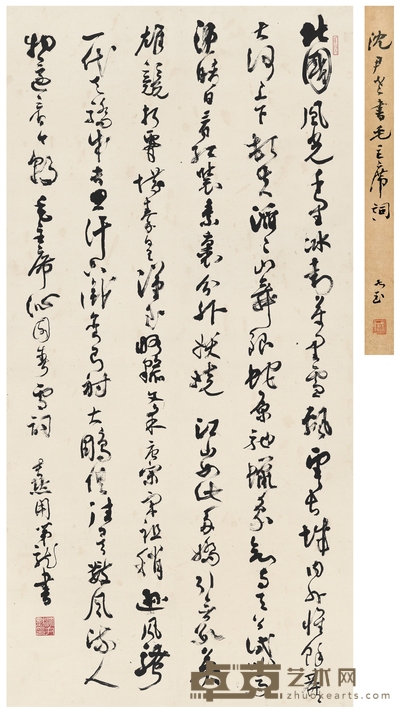 沈尹老書毛主席詞
北國風光千里冰封万里雪飘望长城内外惟餘莽々
大河上下頓失滔々山舞銀蛇原馳蠟象欲与天公試比高
須晴日看紅裝素裹分外妖娆 江山如此多嬌引無數英
雄競折腰惜秦皇漢武略輸文采唐宗宋祖稍遜風騷
一代天驕成吉思汗只識彎弓射大鵰俱往矣數風流人
物還看今朝 毛主席沁園春雪詞 書
艺术网
zhuokearts.com